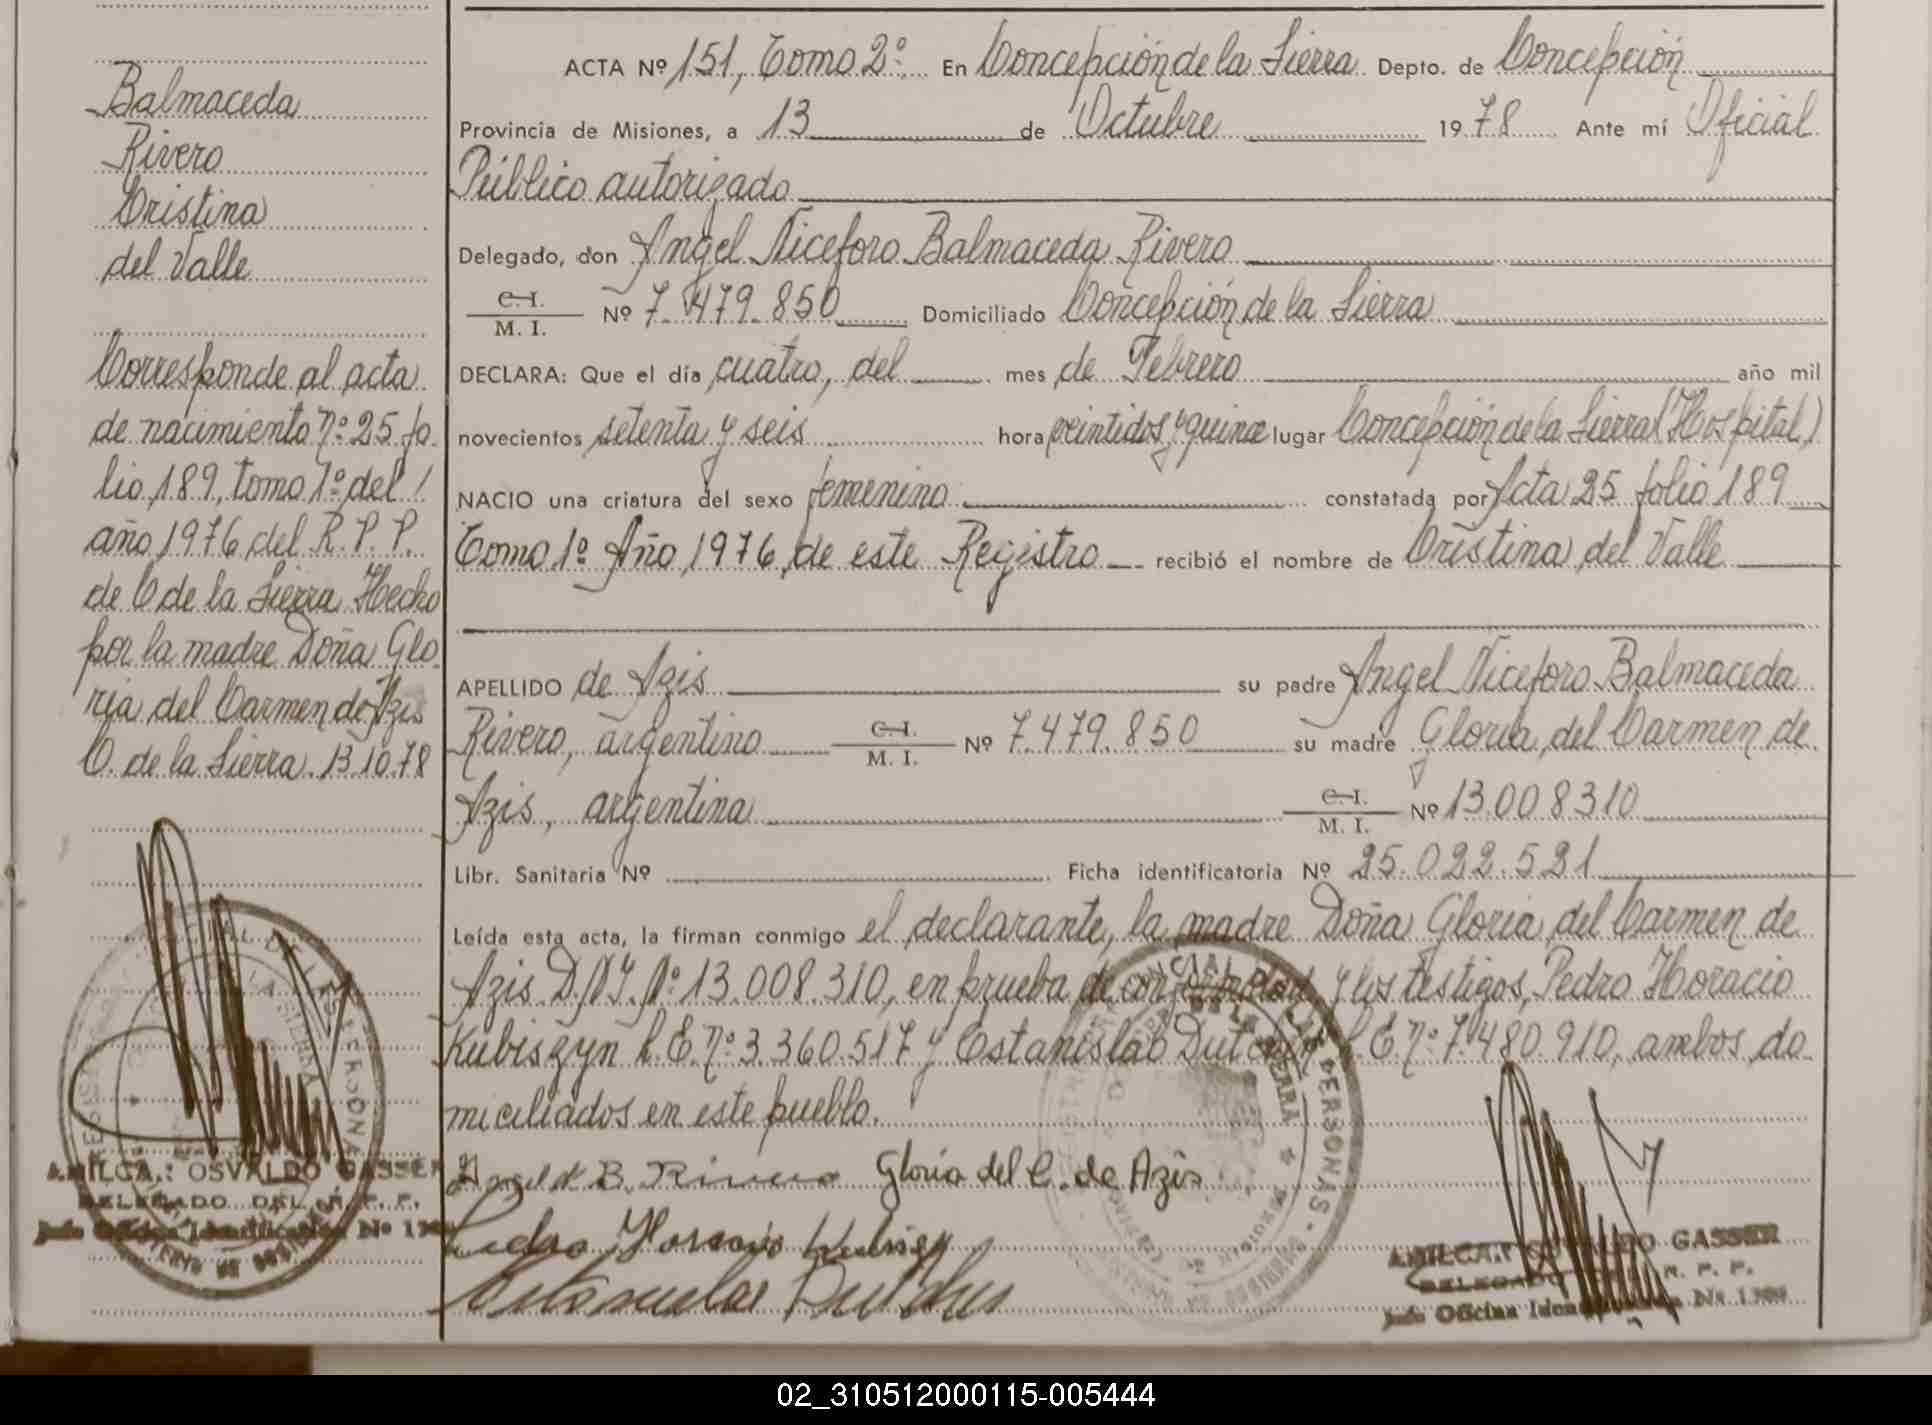 Balmaceda
Rivero
Cristina
del Valle
Corresponde al acta
de nacimiento Nº 25 fo
lio 189, tomo 1º del /
año 1976 del R.P.P.
de C de la Sierra Hecho
por la madre Doña Glo
ria del Carmen de Azis
C. de la Sierra. 13.10.78
AMILCA.: OSVALDO GASSER
DELEGADO DEL R. P. P.
Jefe Oficina Identificación Nº
ACTA Nº 151, Tomo 2º En Concepción de la Sierra Depto. de Concepción
Provincia de Misiones, a 13 de Octubre 1978 Ante mí Oficial
Público autorizado
Delegado, don Angel Niceforo Balmaceda Rivero
C.I. / M. I. Nº 7.479.850 Domiciliado Concepción de la Sierra
DECLARA: Que el día cuatro, del mes de Febrero año mil
novecientos setenta y seis hora veintidos y quince lugar Concepción de la Sierra (Hospital)
NACIO una criatura del sexo femenino constatada por Acta 25 folio 189
Tomo 1º Año 1976, de este Registro recibió el nombre de Cristina del Valle
APELLIDO de Azis su padre Angel Niceforo Balmaceda
Rivero, argentino C.I. / M. I. Nº 7.479.850 su madre Gloria del Carmen de
Azis, argentina C.I. / M. I. Nº 13.008310
Libr. Sanitaria Nº Ficha identificatoria Nº 25.022.521
Leída esta acta, la firman conmigo el declarante, la madre Doña Gloria del Carmen de
Azis D.N.I. Nº 13.008.310, en prueba de conformidad y los testigos, Pedro Horacio
Kubiszyn L.E. Nº 3.360.517 y Estanislao L.E. Nº 7.480.910, ambos do
miciliados en este pueblo.
Angel N B. Rivero Gloria del C. de Azis
Pedro Horacio
AMILCA.: OSVALDO GASSER
DELEGADO DEL R. P. P.
Jefe Oficina Identificación Nº
02_310512000115-005444